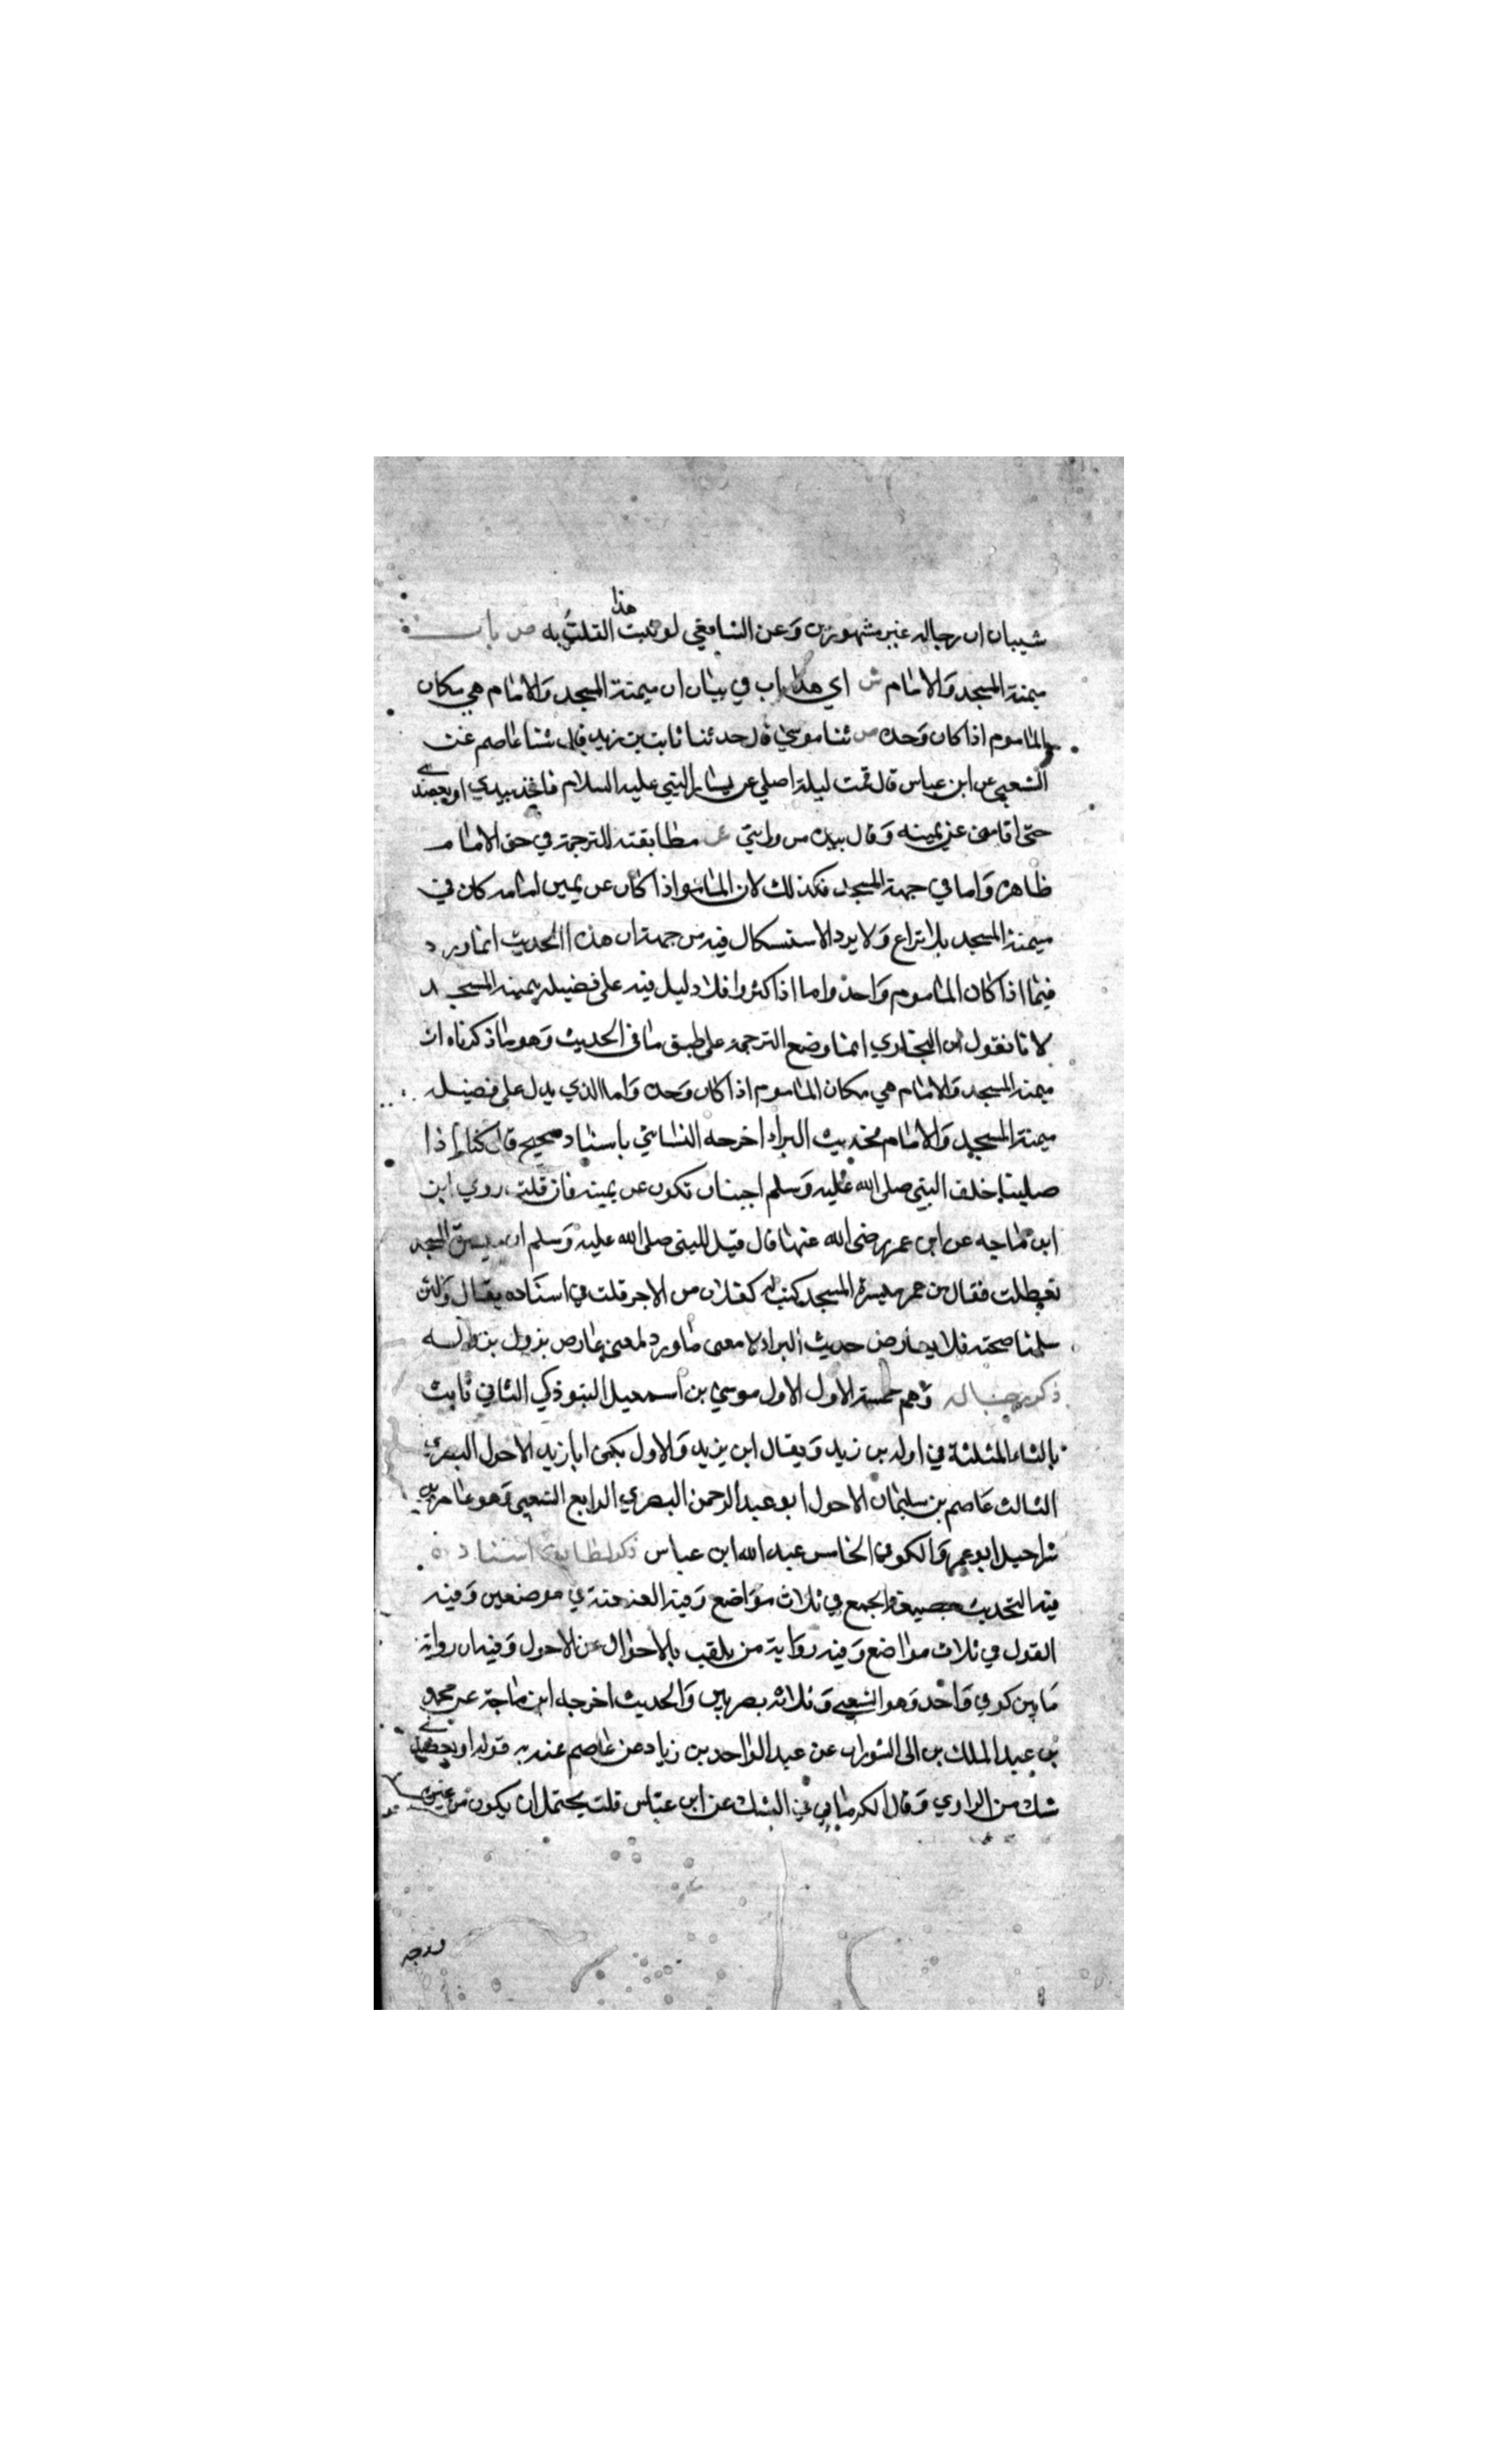 شيبان ان رجاله غير مشهورين وعن الشافعي لو ثبت هذا لقلت به ص باب
ميمنة المسجد والامام ش اي هذا باب في بيان ان ميمنة المسجد والامام هي مكان
الماموم اذا كان وحده ص ثنا موسي قال حدثنا ثابت بن زيد قال ثنا عاصم عن
الشعبي عن ابن عباس قال قمت ليلة اصلي عن يسار النبي عليه السلام فاخذ بيدي او بعضدي
حتى اقامني عن يمينه وقال بيده من ورايي ش مطابقته للترجمة في حق الامام
ظاهره واما في جهة المسجد فكذلك لان الماموم اذا كان عن يمين امامه كان في
ميمنة المسجد بلا نزاع ولا يرد الاستشكال فيه من جهة ان هذا الحديث انما ورد
فيما اذا كان الماموم واحدا واما اذا كثروا فلا دليل فيه على فضيلة ميمنة المسجد
لانا نقول ان البخاري انما وضع الترجمة على طبق ما في الحديث وهو ما ذكرناه ان
ميمنة المسجد والامام هي مكان الماموم اذا كان وحده واما الذي يدل على فضيلة
ميمنة المسجد والامام فحديث البراء اخرجه النسائي باسناد صحيح قال كنا اذا
صلينا خلف النبي صلى الله عليه وسلم احببنا ان نكون عن يمينه فان قلت روي ابن
ابن ماجه عن ابن عمر رضي الله عنهما قال قيل للنبي صلى الله عليه وسلم ان ميسرة المسجد
تعطلت فقال من عمر ميسرة المسجد كتب له كفلان من الاجر قلت في اسناده مقال ولئن
سلمنا صحته فلا يعارض حديث البراء لا معنى ما ورد لمعنى عارض يزول بزواله
ذكر رجاله وهم خمسة الاول الاول موسي بن اسمعيل التبوذكي الثاني ثابت
بالثاء المثلثة في اوله بن زيد ويقال ابن يزيد والاول يكنى ابا زيد الاحول البصري
الثالث عاصم بن سليمان الاحول ابو عبد الرحمن البصري الرابع الشعبي وهو عامر بن
شراحيل ابو عمرو الكوفي الخامس عبد الله ابن عباس ذكر لطايف اسناده
فيه التحديث بصيغة الجمع في ثلاث مواضع وفيه العنعنة في موضعين وفيه
القول في ثلاث مواضع وفيه رواية من يلقب بالاحوال عن الاحول وفيه ان رواته
ما بين كوفي واحد وهو الشعبي وثلاثه بصريين والحديث اخرجه ابن ماجة عن محمد
بن عبد الملك بن ابى الشوراب عن عبد الواحد بن زياد عن عاصم عنه به قوله او بعضدي
شك من الراوي وقال الكرماني في الشك عن ابن عباس قلت يحتمل ان يكون من غيره